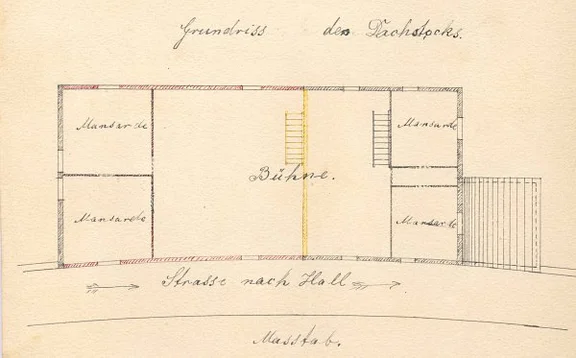 Grundriss des Dachstocks.
Mansarde
Mansarde
Bühne.
Mansarde
Mansarde
Strasse nach Hall
Masstab.